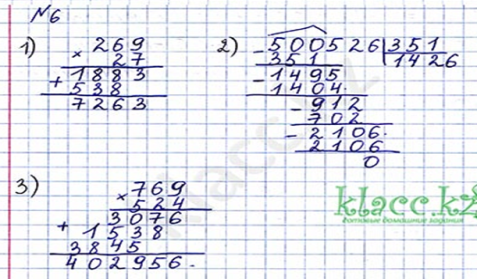 №6
1) × 269
27
+ 1883
538
7263
2) - 500526 | 351
351 | 1426
- 1495
1404
- 912
702
- 2106
2106
0
3) × 769
524
3076
+ 1538
3845
402956
klass.kz
готовые домашние задания